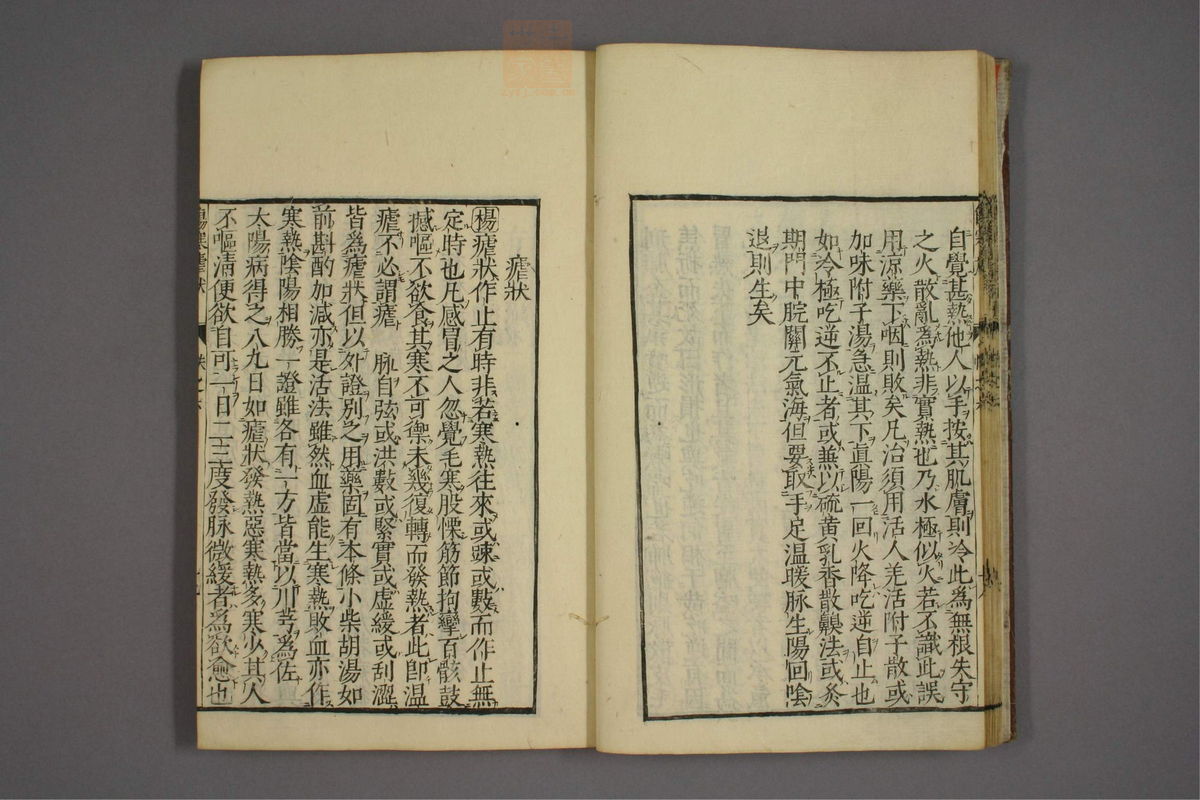 自覺甚熱他人以手按其肌膚則冷此為無根失守
之火散亂為熱非實熱也乃水極似火若不識此誤
用涼藥下咽則敗矣凡治須用活人羌活附子散或
加味附子湯急温其下眞陽一回火降吃逆自止也
如冷極吃逆不止者或兼以硫黄乳香散齅法或灸
期門中脘關元氣海但要取手足温暖脉生陽回陰
退則生矣
瘧狀
楊瘧狀作止有時非若寒熱往來或踈或數而作止無
定時也凡感冒之人忽覺毛寒股慄筋節拘攣百骸鼓
撼嘔不欲食其寒不可禦未幾復轉而發熱者此即温
瘧不必謂瘧 脉自弦或洪數或緊實或虚緩或刮澀
皆為瘧狀但以外證别之用藥固有本條小柴胡湯如
前斟酌加減亦是活法雖然血虚能生寒熱敗血亦作
寒熱陰陽相勝一證雖各有一方皆當以川芎為佐
太陽病得之八九日如瘧狀發熱惡寒熱多寒少其人
不嘔清便欲自可一日二三度發脉微緩者為欲愈也